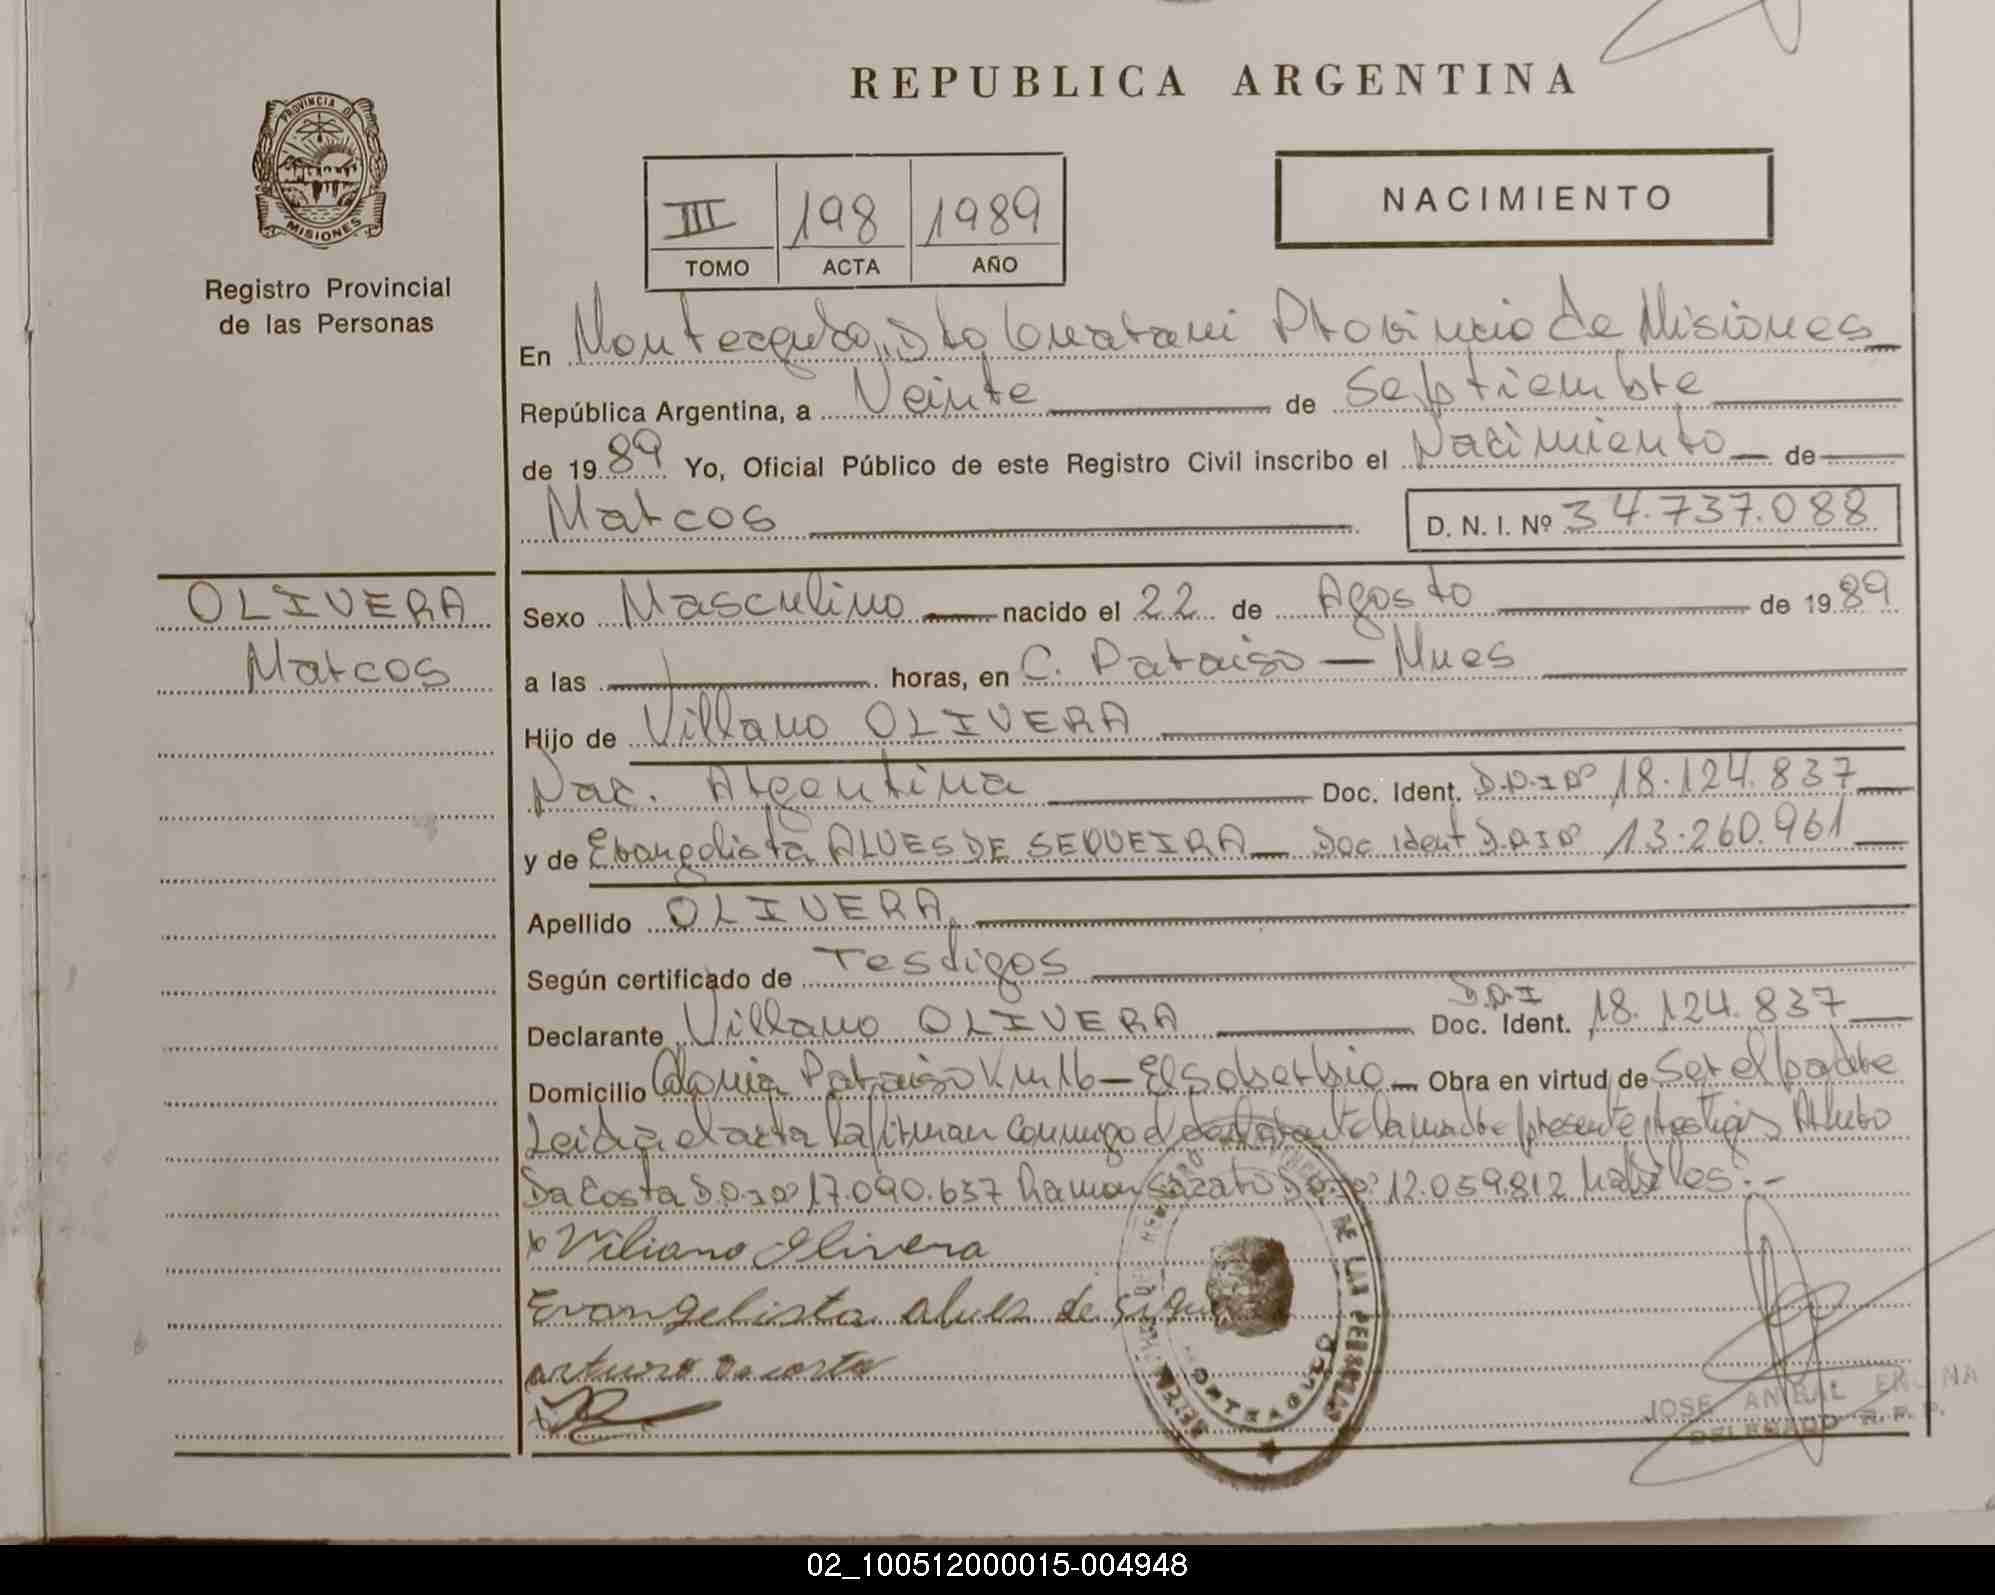 REPUBLICA ARGENTINA
PROVINCIA DE
MISIONES
Registro Provincial
de las Personas
III 198 1989
TOMO ACTA AÑO
NACIMIENTO
En Monteagudo, Dto Guarani Provincia de Misiones
República Argentina, a Veinte de Septiembre
de 1989 Yo, Oficial Público de este Registro Civil inscribo el Nacimiento de
Marcos D. N. I. Nº 34.737.088
OLIVERA
Marcos
Sexo Masculino nacido el 22 de Agosto de 1989
a las horas, en C. Paraiso - Mnes
Hijo de Villano OLIVERA
Nac. Argentina Doc. Ident. D.N.I Nº 18.124.837
y de Evangelista ALVES DE SEQUEIRA Doc ident D.N.I Nº 13.260.961
Apellido OLIVERA
Según certificado de Testigos
Declarante Villano OLIVERA D.N.I Doc. Ident. 18.124.837
Domicilio Colonia Paraiso Km 16 - El Soberbio Obra en virtud de Ser el padre
Leida el acta la firman conmigo el declarante la madre presente testigos Arturo
Da Costa D.N.I Nº 17.090.637 Ramon D.N.I Nº 12.059.812 habiles.-
Viliano Olivera
Evangelista alves de
arturo Da costa
DE LAS PERSONAS
MONTEAGUDO
JOSE ANIBAL
DELEGADO R. P. P.
02_100512000015-004948